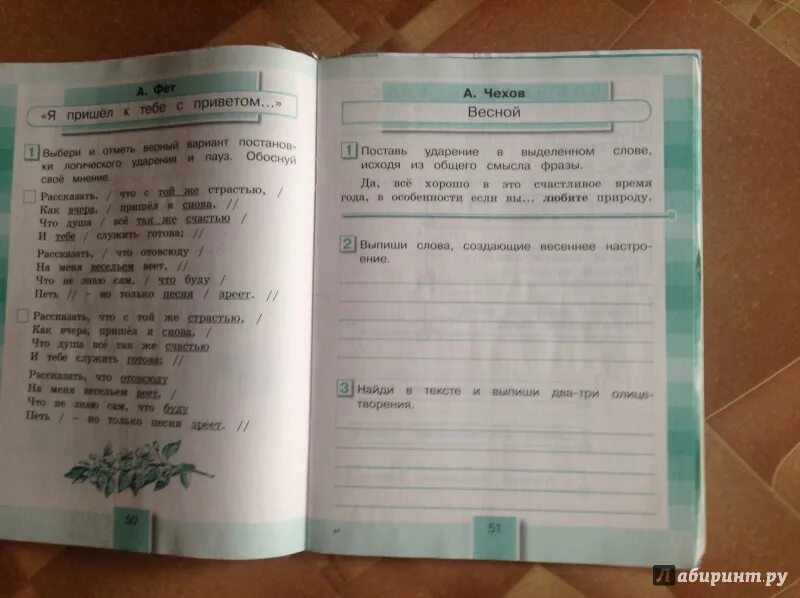 А. Фет
«Я пришёл к тебе с приветом...»
1 Выбери и отметь верный вариант постанов-
ки логического ударения и пауз. Обоснуй
своё мнение.
Рассказать, / что с той же страстью, /
Как вчера, / пришёл я снова, //
Что душа / всё так же счастью /
И тебе / служить готова; //
Рассказать, / что отовсюду /
На меня весельем веет, //
Что не знаю сам, / что буду /
Петь // – но только песня / зреет. //
Рассказать, что с той же страстью, /
Как вчера, пришёл я снова, /
Что душа всё так же счастью
И тебе служить готова; //
Рассказать, что отовсюду
На меня весельем веет, /
Что не знаю сам, что буду
Петь / – но только песня зреет. //
50
А. Чехов
Весной
1 Поставь ударение в выделенном слове,
исходя из общего смысла фразы.
Да, всё хорошо в это счастливое время
года, в особенности если вы... любите природу.
2 Выпиши слова, создающие весеннее настро-
ение.
3 Найди в тексте и выпиши два-три олице-
творения.
51
Лабиринт.ру